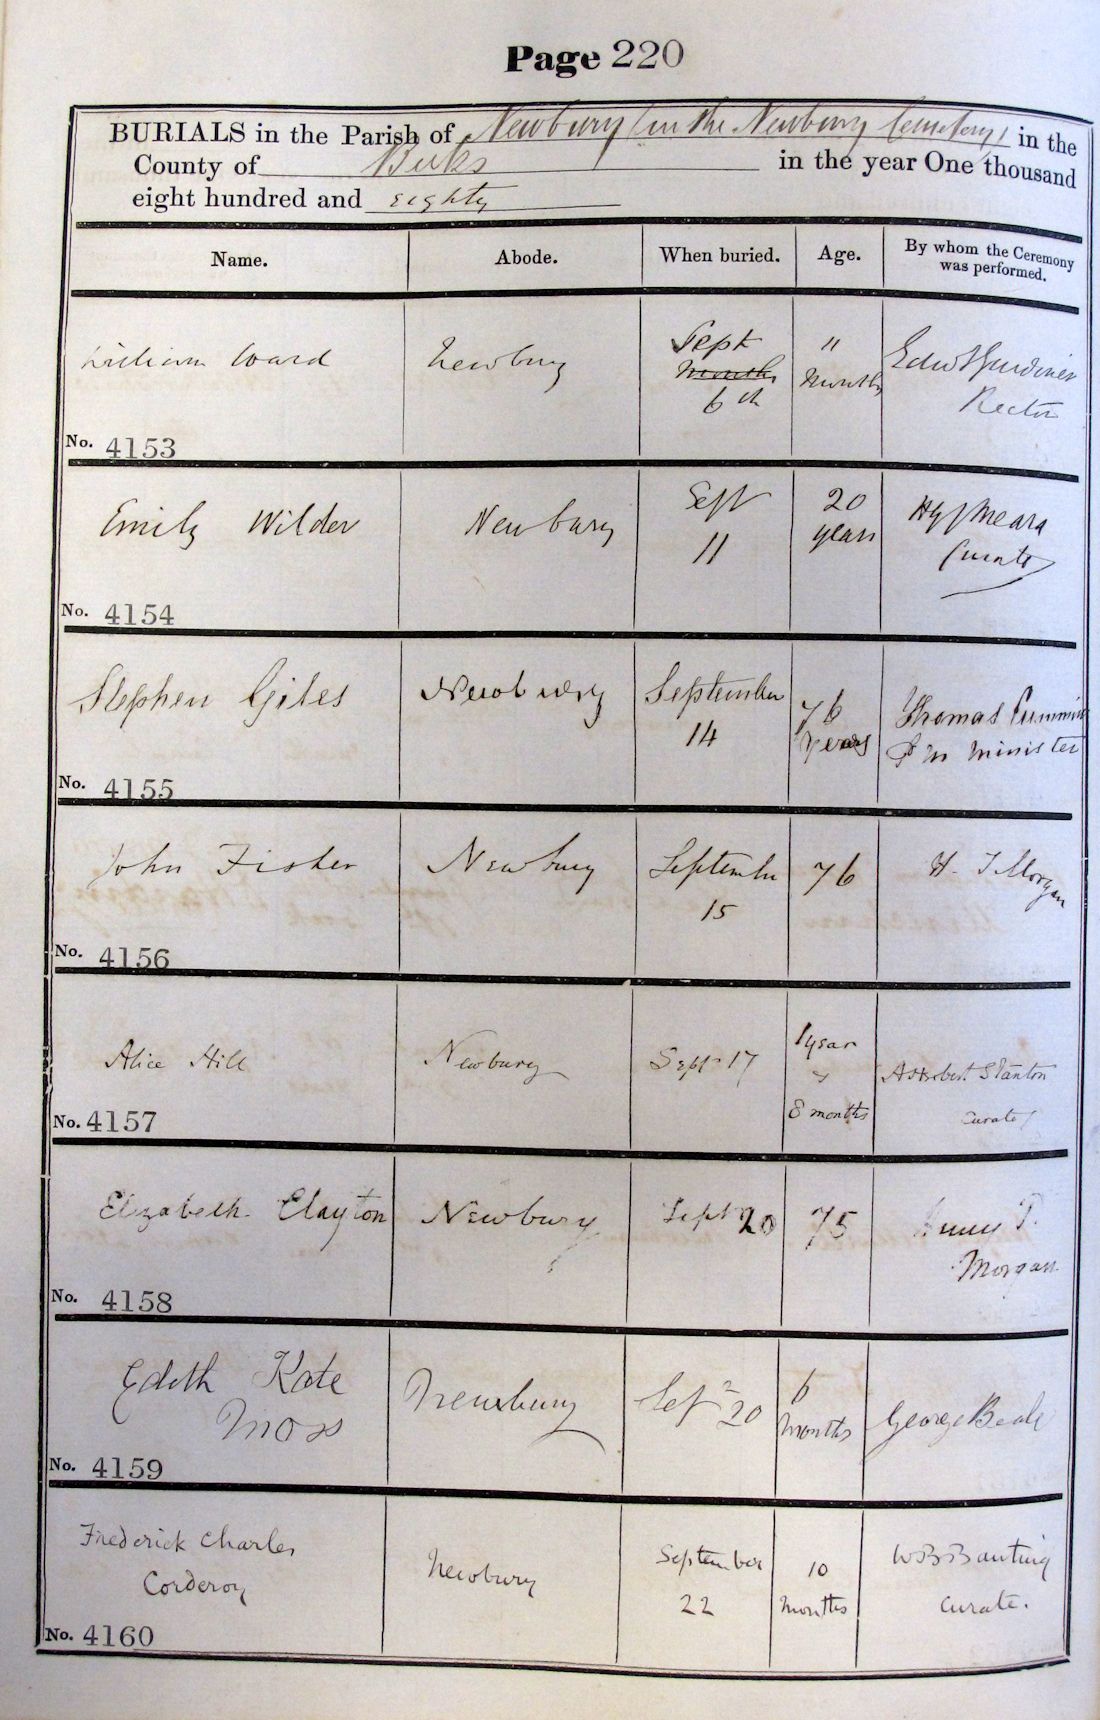 Page 220
BURIALS in the Parish of Newbury (in the Newbury Cemetery) in the
County of Berks in the year One thousand
eight hundred and eighty
Name. Abode. When buried. Age. By whom the Ceremony
was performed.
William Ward Newbury Sept 11 Edwd Gardiner
Months months Rector
6th
No. 4153
Emily Wilder Newbury Sept 20 Meara
11 years Curate
No. 4154
Stephen Giles Newbury September 76 Thomas Cummin
14 years P M Minister
No. 4155
John Fisher Newbury September 76 H. T Morgan
15
No. 4156
Alice Hill Newbury Sept 17 1 year Stanton
& 8 months Curate
No. 4157
Elizabeth Clayton Newbury Sept 20 75 Henry T.
Morgan
No. 4158
Edith Kate Newbury Sep 20 6 George Beale
Moss months
No. 4159
Frederick Charles Newbury September 10 W B Banting
Corderoy 22 months Curate.
No. 4160